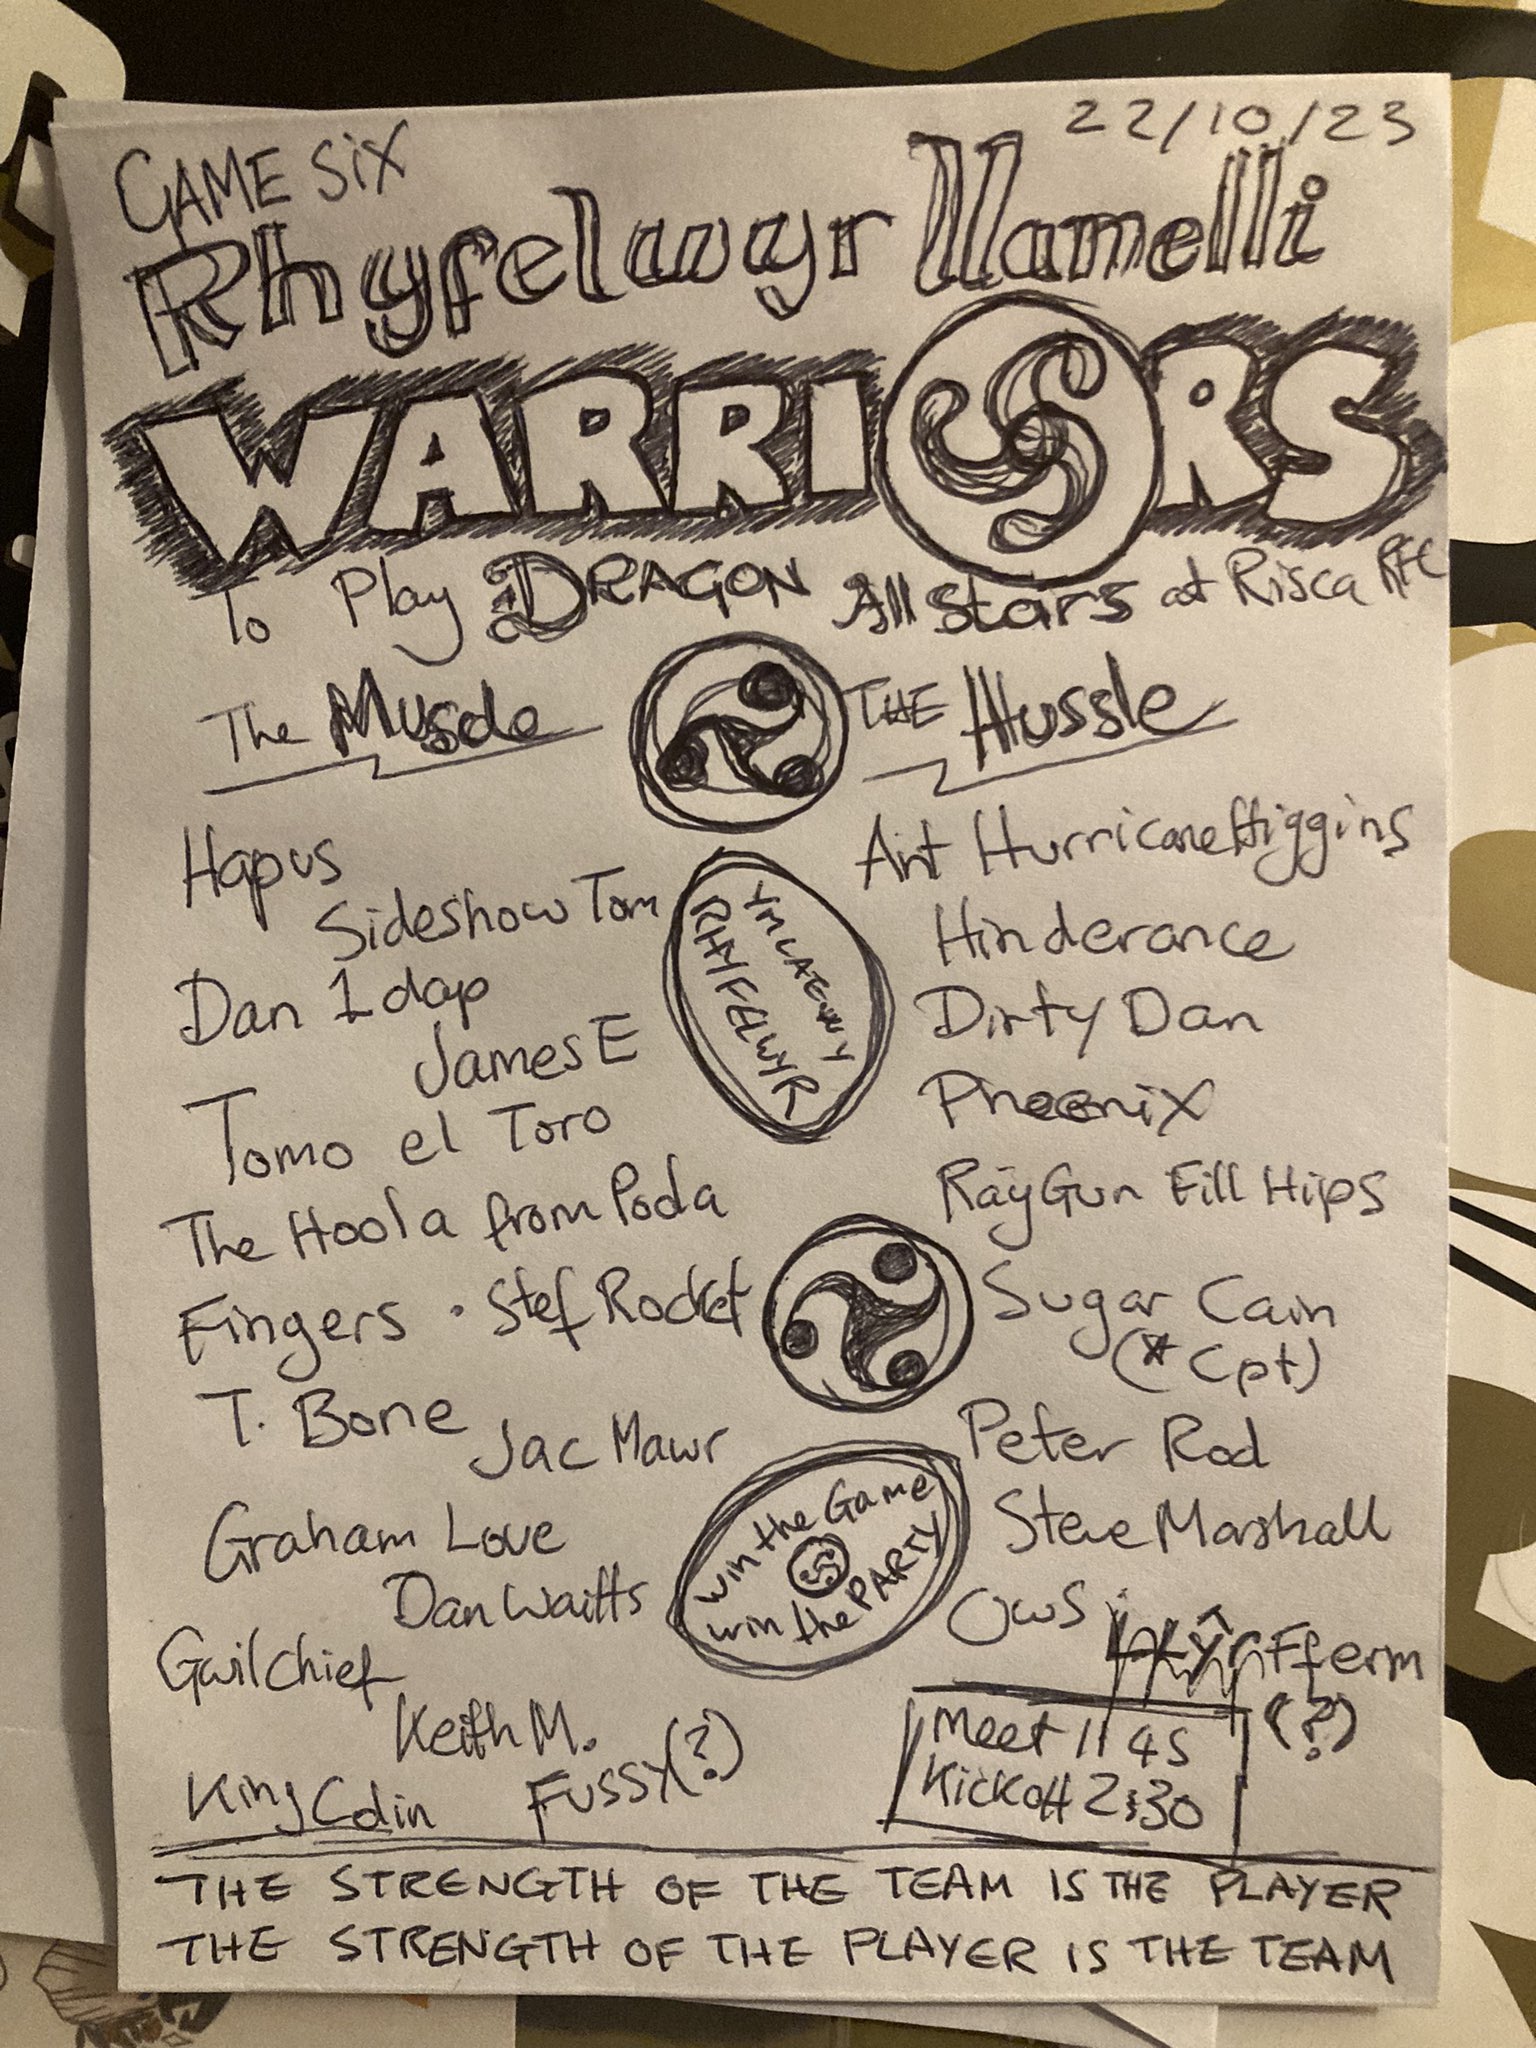 22/10/23
GAME SIX
Rhyfelwyr Llanelli
WARRIORS
To Play DRAGON All Stars at Risca RFC
The Muscle
THE Hussle
Hapus
Sideshow Tom
Dan 1 dap
James E
Tomo el Toro
The Hoola from Poda
Fingers • Stef Rocket
T. Bone
Jac Mawr
Graham Love
Dan Waitts
Gwil Chief
Keith M.
King Colin
Fussy (?)
YMLAENWY
RHYFELWYR
Win the Game
win the PARTY
Ant Hurricane Higgins
Hinderance
Dirty Dan
Phoenix
RayGun Fill Hips
Sugar Cain
(* Cpt)
Peter Rod
Steve Marshall
Ows
Fferm
(?)
Meet 11 45
Kickoff 2:30
THE STRENGTH OF THE TEAM IS THE PLAYER
THE STRENGTH OF THE PLAYER IS THE TEAM